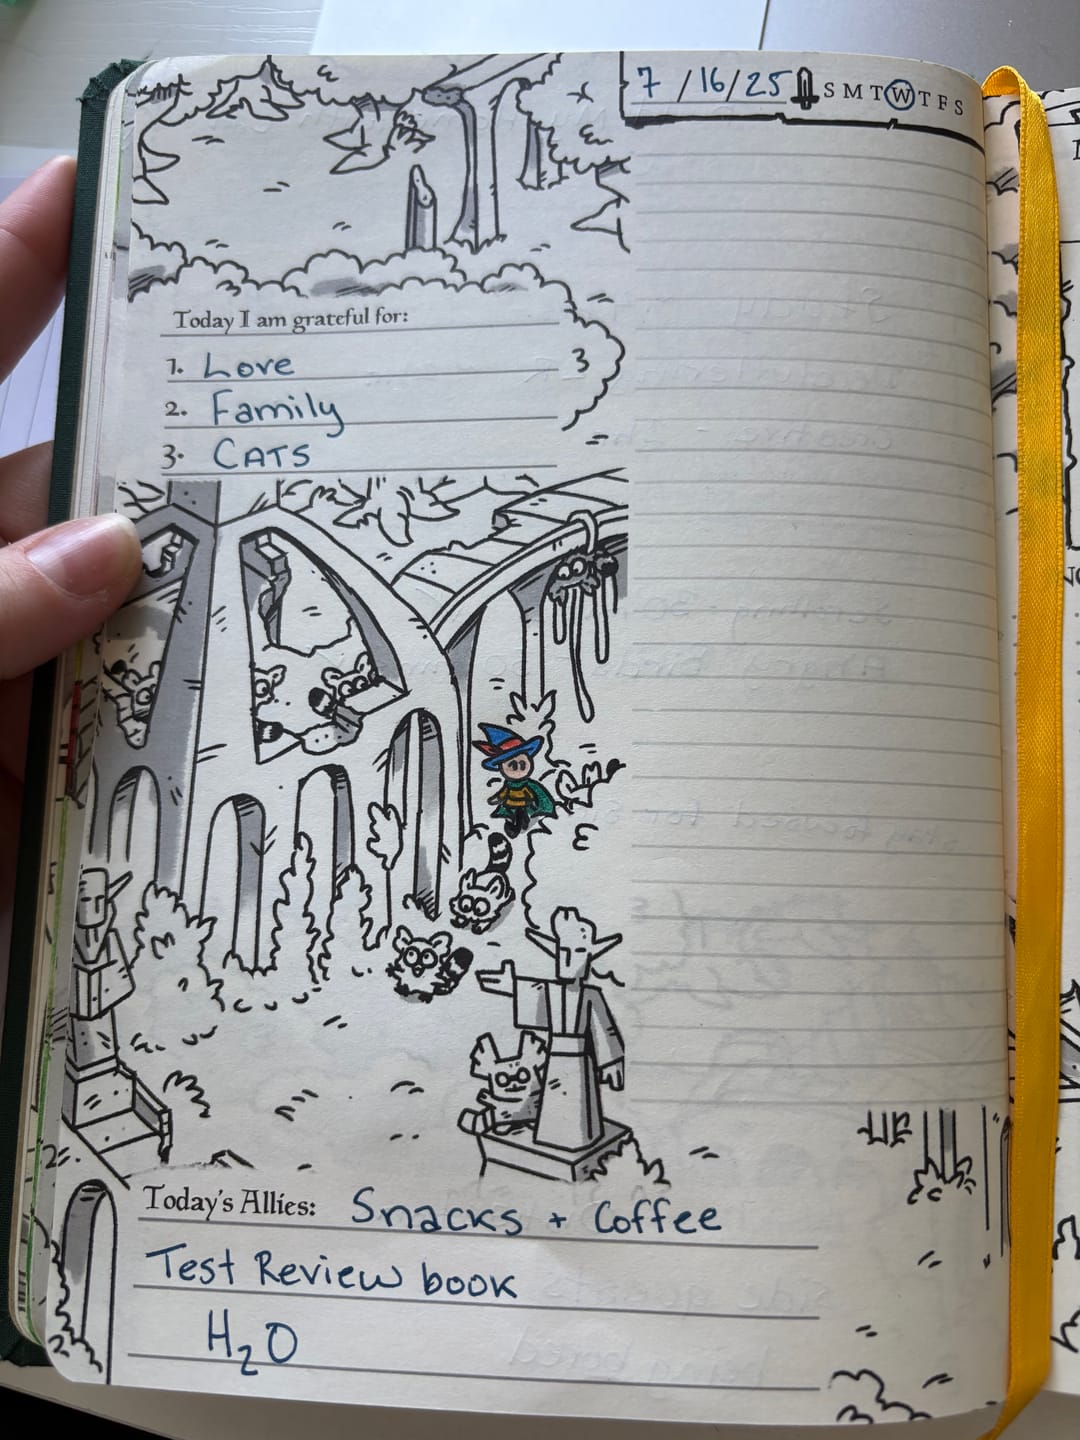 7/16/25 S M T W T F S
Today I am grateful for:
1. Love
2. Family
3. CATS
Today's Allies: Snacks + Coffee
Test Review book
H₂O